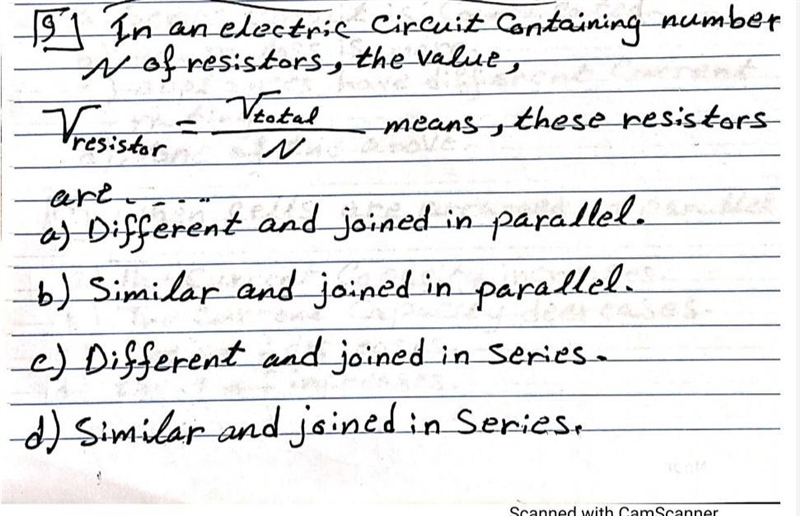 9] In an electric circuit Containing number
N of resistors, the value,
V resistor = V total / N means, these resistors
are.....
a) Different and joined in parallel.
b) Similar and joined in parallel.
c) Different and joined in series.
d) Similar and joined in Series.
Scanned with CamScanner